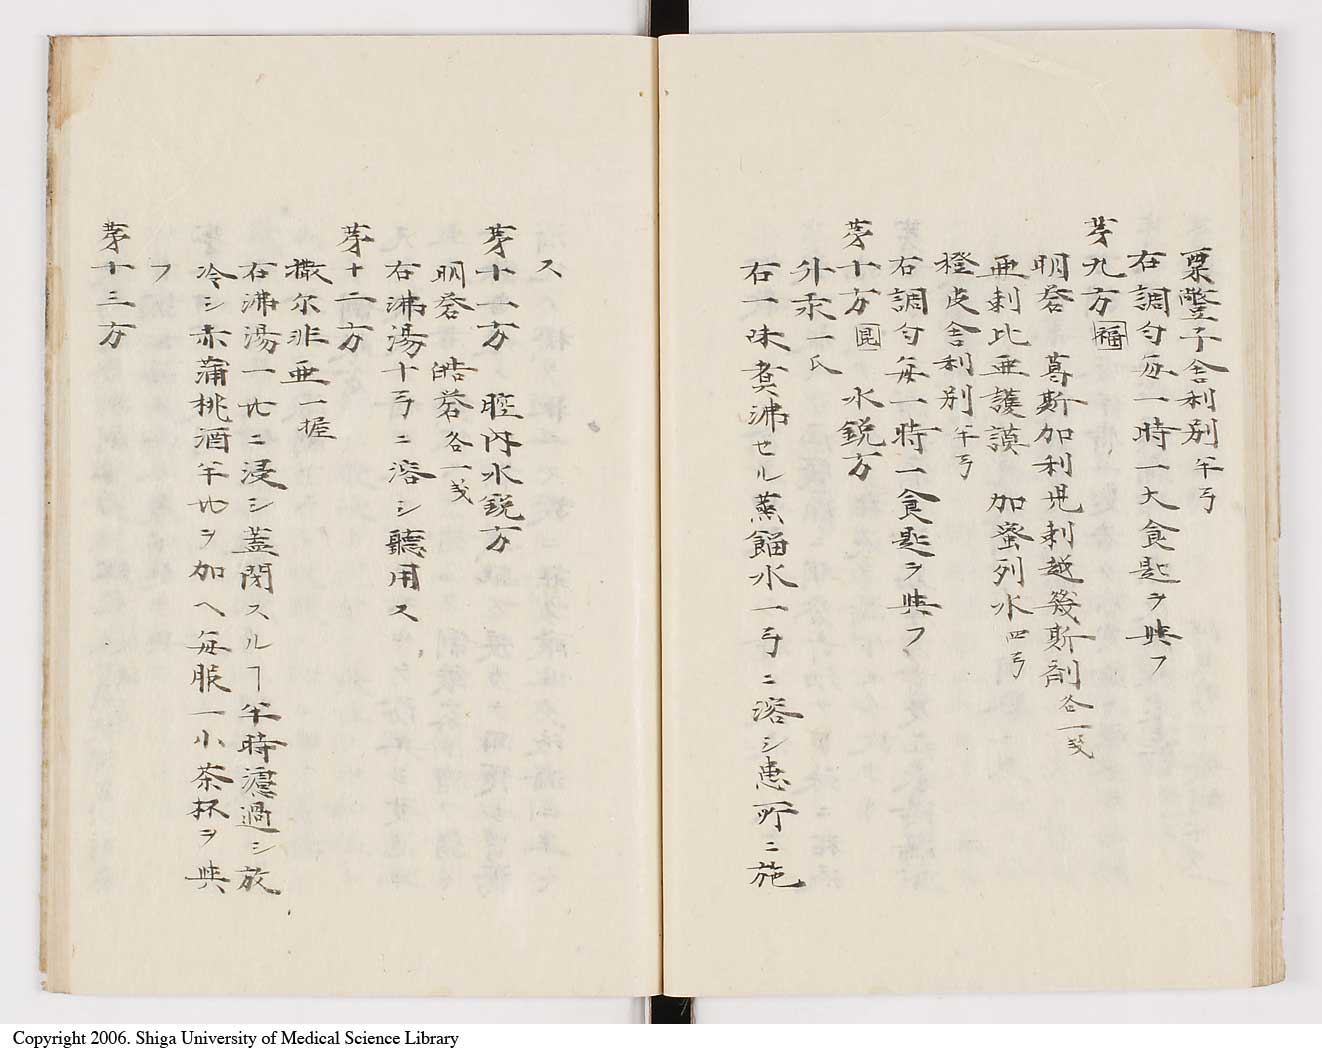 粟罌子舎利別 半弓
右調匀毎一時一大食匙ヲ與フ
第九方 福
明礬 葛斯加利児剌越幾斯剤 各一戔
亜剌比亜護謨 加蜜列水 四弓
橙皮舎利別 半弓
右調匀毎一時一食匙ヲ與フ
第十方 昆 水銃方
升汞 一氏
右一味煮沸セル蒸餾水一弓ニ溶シ患所ニ施
ス
第十一方 腟内水銃方
明礬 皓礬 各一戔
右沸湯十弓ニ溶シ聽用ス
第十二方
撒尓非亜 一握
右沸湯一廿ニ浸シ蓋閉スルヿ半時濾過シ放
冷シ赤蒲桃酒半廿ヲ加ヘ毎服一小茶杯ヲ與
フ
第十三方
Copyright 2006. Shiga University of Medical Science Library